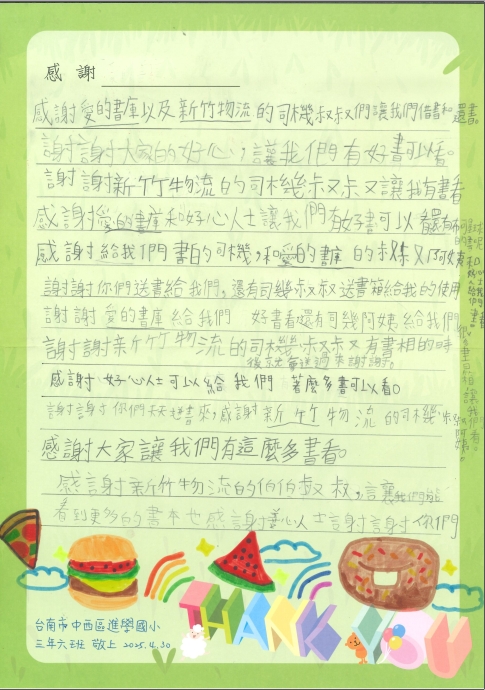 感謝
感謝愛的書庫以及新竹物流的司機叔叔們讓我們借書和還書。
謝謝大家的好心,讓我們有好書可以看。
謝謝新竹物流的司機叔叔讓我有書看
感謝愛的書庫和好心人士讓我們有好書可以看還有
感謝給我們書的司機,和愛的書庫的叔叔阿姨
謝謝你們送書給我們,還有司幾叔叔送書箱給我的使用
謝謝愛的書庫給我們好書看還有司幾阿姨給我們
謝謝新竹物流的司機叔叔又有書相的時
後就會送過來謝謝。
感謝好心人士可以給我們著麼多書可以看。
謝謝你們天天送書來,感謝新竹物流的司機
感謝大家讓我們有這麼多書看。
感謝新竹物流的伯伯叔叔,讓我們能
看到更多的書本也感謝善心人士謝謝你們
THANK YOU
台南市中西區進學國小
三年六班 敬上 2025.4.30